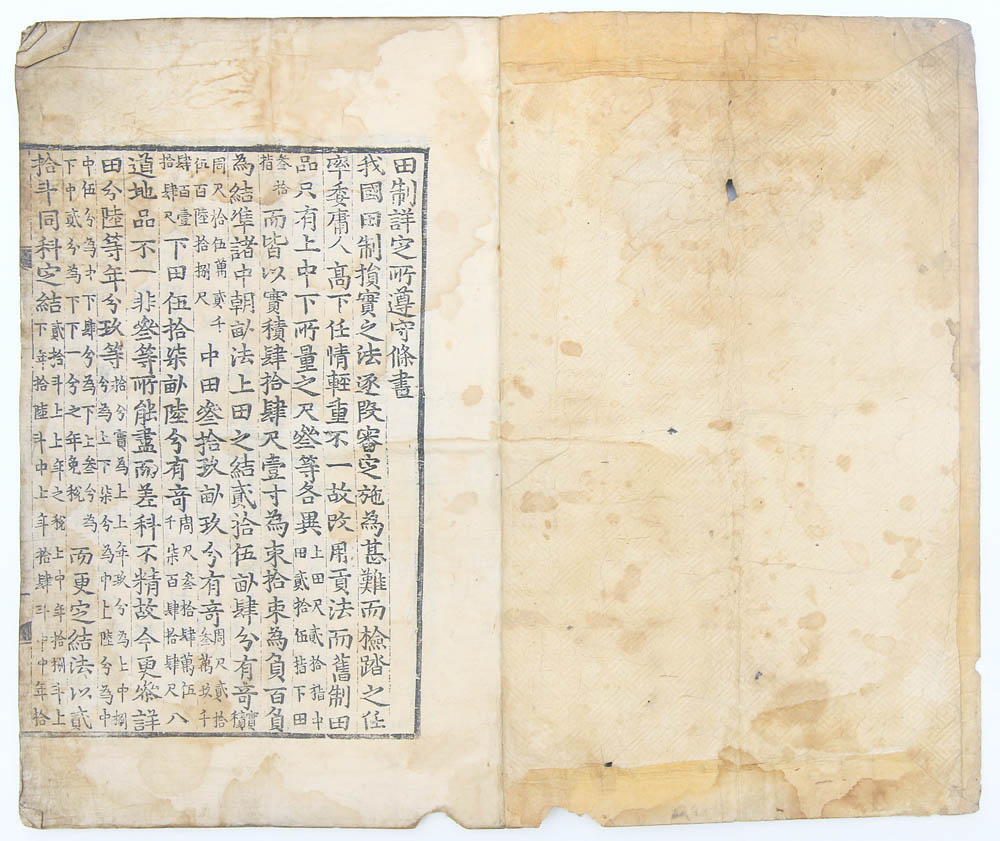 田制詳定所遵守條畫
我國田制損實之法逐段審定施為甚難而檢踏之任
率委庸人高下任情輕重不一故改用貢法而舊制田
品只有上中下所量之尺叅等各異上田尺貳拾指中田貳拾伍指下田
叅拾指而皆以實積肆拾肆尺壹寸為束拾束為負百負
為結準諸中朝畒法上田之結貳拾伍畒肆分有竒實積
周尺拾伍萬貳千伍百陸拾捌尺中田叅拾玖畒玖分有竒周尺貳拾叅萬玖千
肆百壹拾肆尺下田伍拾柒畒陸分有竒周尺叅拾肆萬伍千柒百肆拾肆尺八
道地品不一非叅等所能盡而差科不精故今更察詳
田分陸等年分玖等拾分實為上上年玖分為上中捌分為上下柒分為中上陸分為中
中伍分為中下肆分為下上叅分為下中貳分為下下一分之年免稅而更定結法以貳
拾斗同科定結貳拾斗上上年之稅上中年拾捌斗上下年拾陸斗中上年拾肆斗中中年拾